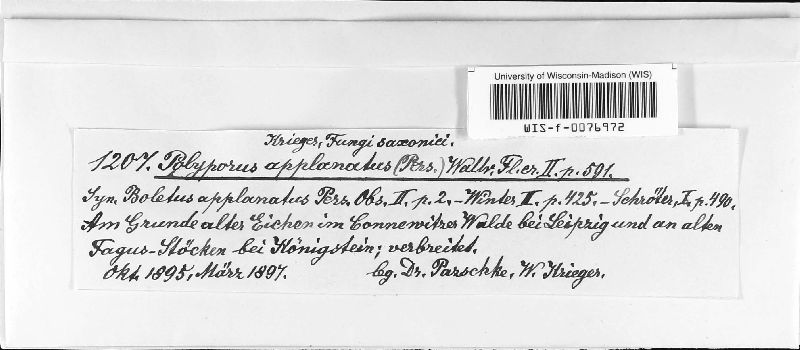 University of Wisconsin-Madison (WIS)
WIS-f-0076972
Krieger, Fungi saxonici.
1207. Polyporus applanatus (Pers.) Wallr. Fl. cr. II. p. 591.
Syn. Boletus applanatus Pers. Obs. II. p. 2. – Winter, II. p. 425. – Schröter, I. p. 490.
Am Grunde alter Eichen im Connewitzer Walde bei Leipzig und an alten
Fagus-Stöcken bei Königstein; verbreitet.
Okt. 1895, März 1897. lg. Dr. Parschke, W. Krieger.